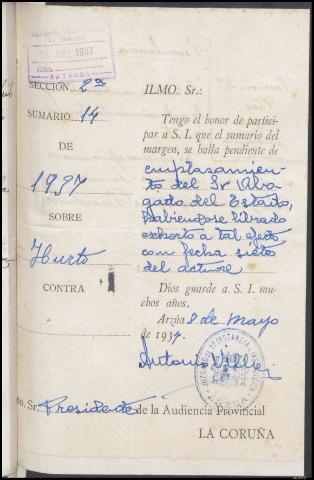 AUDIENCIA TERRITORIAL
LA CORUÑA
1937
ENTRADA
SECCIÓN 2ª
SUMARIO 14
DE
1937
SOBRE
Hurto
CONTRA
ILMO. Sr.:
Tengo el honor de partici-
par a S. I. que el sumario del
margen, se halla pendiente de
emplasamien-
to del Sr Abo-
gado del Estado,
habiendose librado
exhorto a tal efecto
con fecha siete
del actual
Dios guarde a S. I. mu-
chos años.
Arzúa 8 de Mayo
de 1937.
Antonio
mo. Sr. Presidente de la Audiencia Provincial
LA CORUÑA